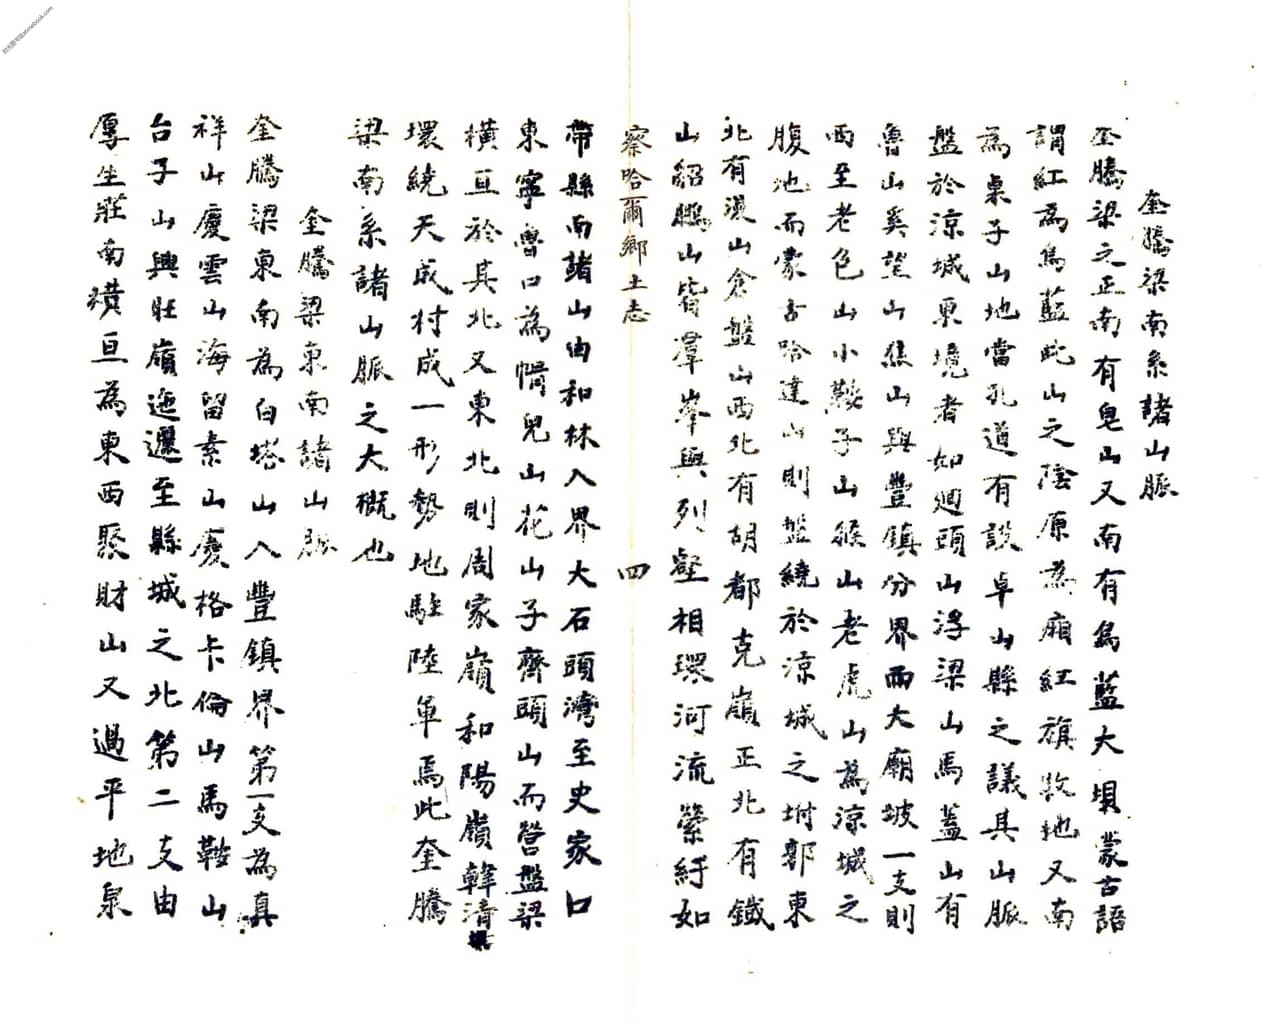 奎騰梁南系諸山脈
奎騰梁之正南有皂山又南有烏藍大垻蒙古語
謂紅為烏藍此山之陰原為廂紅旗牧地又南
為桌子山地當孔道有設卓山縣之議其山脈
盤於涼城東境者如廻頭山浮梁山馬蓋山有
魯山奚望山焦山與豐鎮分界而大廟坡一支則
西至老色山小鞍子山猴山老虎山為涼城之
腹地而蒙古哈達山則盤繞於涼城之坿郭東
北有漫山倉盤山西北有胡都克嶺正北有鐵
山紹鵬山皆羣峯與列壑相環河流縈紆如
察哈爾鄉土志 四
帶縣南諸山由和林入界大石頭灣至史家口
東寧魯口為帽兒山花山子齊頭山而營盤梁
橫亘於其北又東北則周家嶺和陽嶺韓清壩
環繞天成村成一形勢地駐陸軍焉此奎騰
梁南系諸山脈之大概也
奎騰梁東南諸山脈
奎騰梁東南為白塔山入豐鎮界第一支為真
祥山慶雲山海留素山慶格卡倫山馬鞍山
台子山興旺嶺迤邐至縣城之北第二支由
厚生莊南橫亘為東西聚財山又過平地泉